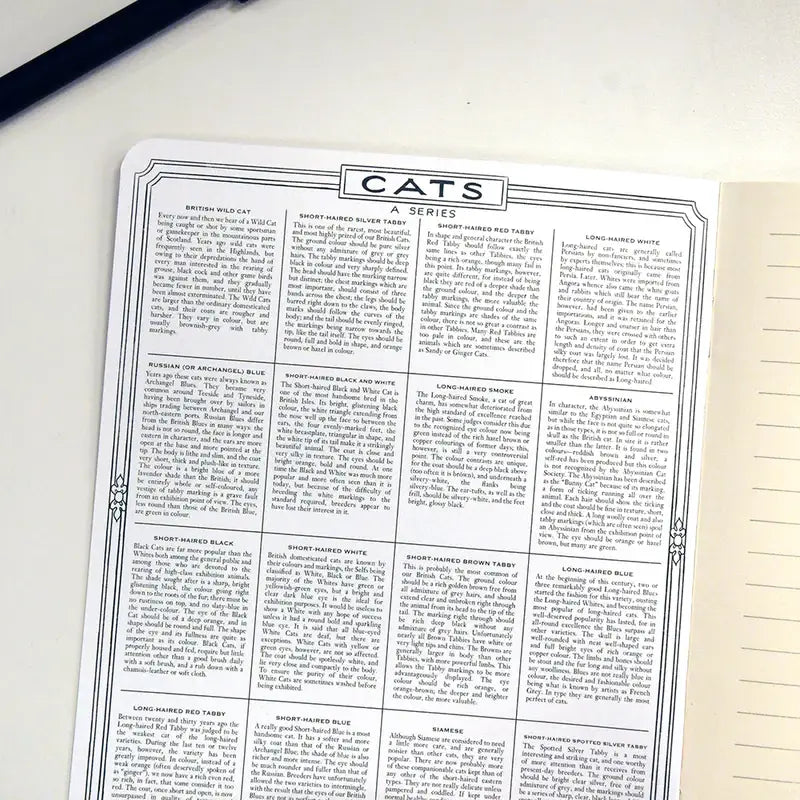 CATS
A SERIES
BRITISH WILD CAT
Every now and then we hear of a Wild Cat
being caught or shot by some sportsman
or gamekeeper in the mountainous parts
of Scotland. Years ago wild cats were
frequently seen in the Highlands, but
owing to their depredations the hand of
every man interested in the rearing of
grouse, black cock and other game birds
was against them, and they gradually
became fewer in number, until they have
been almost exterminated. The Wild Cats
are larger than the ordinary domesticated
cats, and their coats are rougher and
harsher. They vary in colour, but are
usually brownish-grey with tabby
markings.
SHORT-HAIRED SILVER TABBY
This is one of the rarest, most beautiful,
and most highly prized of our British Cats.
The ground colour should be pure silver
without any admixture of grey or grey
hairs. The tabby markings should be deep
black in colour and very sharply defined.
The head should have the marking narrow
but distinct; the chest markings which are
most important, should consist of three
bands across the chest; the legs should be
barred right down to the claws, the body
marks should follow the curves of the
body; and the tail should be evenly ringed,
the markings being narrow towards the
tip, like the tail itself. The eyes should be
round, full and bold in shape, and orange
brown or hazel in colour.
SHORT-HAIRED RED TABBY
In shape and general character the British
Red Tabby should follow exactly the
same lines as other Tabbies, the eyes
being a rich orange, though many fail in
this point. Its tabby markings, however,
are quite different, for instead of being
black they are red of a deeper shade than
the ground colour, and the deeper the
tabby markings, the more valuable the
animal. Since the ground colour and the
tabby markings are shades of the same
colour, there is not so great a contrast as
in other Tabbies. Many Red Tabbies are
too pale in colour, and these are the
animals which are sometimes described
as Sandy or Ginger Cats.
LONG-HAIRED WHITE
Long-haired cats are generally called
Persians by non-fanciers, and sometimes
by experts themselves; this is because most
long-haired cats originally came from
Persia. Later, Whites were imported from
Angora whence also came the white goats
and rabbits which still bear the name of
their country of origin. The name Persian,
however, had been given to the earlier
importations, and it was retained for the
Angoras. Longer and coarser in hair than
the Persians, they were crossed with others
to such an extent in order to get extra
length and density of coat that the Persian
silky coat was largely lost. It was decided
therefore that the name Persian should be
dropped, and all, no matter what colour,
should be described as Long-haired.
RUSSIAN (OR ARCHANGEL) BLUE
Years ago these cats were always known as
Archangel Blues. They became very
common around Teeside and Tyneside,
having been brought over by sailors in
ships trading between Archangel and our
north-eastern ports. Russian Blues differ
from the British Blues in many ways: the
head is not so round, the face is longer and
eastern in character, and the ears are more
open at the base and more pointed at the
tip. The body is lithe and slim, and the coat
very short, thick and plush-like in texture.
The colour is a bright blue of a more
lavender shade than the British; it should
be entirely whole or self-coloured, any
vestige of tabby marking is a grave fault
from an exhibition point of view. The eyes,
less round than those of the British Blue,
are green in colour.
SHORT-HAIRED BLACK AND WHITE
The Short-haired Black and White Cat is
one of the most handsome bred in the
British Isles. Its bright, glistening black
colour, the white triangle extending from
the nose well up the face to between the
ears, the four evenly-marked feet, the
white breastplate, triangular in shape, and
the white tip of its tail make it a strikingly
beautiful animal. The coat is close and
very silky in texture. The eyes should be
bright orange, bold and round. At one
time the Black and White was much more
popular and more often seen than it is
today, but because of the difficulty of
breeding the white markings to the
standard required, breeders appear to
have lost their interest in it.
LONG-HAIRED SMOKE
The Long-Haired Smoke, a cat of great
charm, has somewhat deteriorated from
the high standard of excellence reached
in the past. Some judges consider this due
to the recognised eye colour now being
given instead of the rich hazel brown or
copper colourings of former days; this,
however, is still a very controversial
point. The colour contrasts are unique,
for the coat should be a deep black above
(too often it is brown), and underneath,
silvery-white, the flanks being
silvery-blue. The ear-tufts, as well as the
frill, should be silvery-white, and the feet
bright, glossy black.
ABYSSINIAN
In character, the Abyssinian is somewhat
similar to the Egyptian and Siamese cats,
but while the face is not quite so elongated
as in those types, it is not so full or round in
skull as the British cat. In size it is rather
smaller than the latter. It is found in two
colours—reddish brown and silver, a
self-red has been produced but this colour
is not recognised by the Abyssinian Cat
Society. The Abyssinian has been described
as the "Bunny Cat" because of its marking,
a form of ticking running all over the
animal. Each hair should show the ticking
and the coat should be fine in texture, short,
close and thick. A long woolly coat and also
tabby markings (which are often seen) spoil
an Abyssinian from the exhibition point of
view. The eye should be orange or hazel
brown, but many are green.
SHORT-HAIRED BLACK
Black Cats are far more popular than the
Whites both among the general public and
among those who are devoted to the
rearing of high-class exhibition animals.
The shade sought after is a sharp, bright
glistening black, the colour going right
down to the roots of the fur, there must be
no rustiness on top, and no slaty-blue in
the under-colour. The eye of the Black
Cat should be of a deep orange, and in
shape should be round and full. The shape
of the eye and its fullness are quite as
important as its colour. Black Cats, if
properly housed and fed, require but little
attention other than a good brush daily
with a soft brush, and a rub down with a
chamois-leather or soft cloth.
SHORT-HAIRED WHITE
British domesticated cats are known by
their colours and markings, the Selfs being
classified as White, Black or Blue. The
majority of the Whites have green or
yellowish-green eyes, but a bright and
clear dark blue eye is the ideal for
exhibition purposes. It would be useless to
show a White with any hope of success
unless it had a round bold and sparkling
blue eye. It is said that all blue-eyed
White Cats are deaf, but there are
exceptions. White Cats with yellow or
green eyes, however, are not so affected.
The coat should be spotlessly white, and
lie very close and compactly to the body.
To ensure the purity of their colour,
White Cats are sometimes washed before
being exhibited.
SHORT-HAIRED BROWN TABBY
This is probably the most common of
our British Cats. The ground colour
should be a rich golden brown free from
all admixture of grey hairs, and should
extend clear and unbroken right through
the animal from its head to the tip of the
tail. The marking right through should
be rich deep black without any
admixture of grey hairs. Unfortunately
nearly all Brown Tabbies have white or
very light tips and chins. The Browns are
generally larger in body than other
Tabbies, with more powerful limbs. This
allows the Tabby markings to be more
advantageously displayed. The eye
colour should be rich orange, or
orange-brown, the deeper and brighter
the colour, the more valuable.
LONG-HAIRED BLUE
At the beginning of this century, two or
three remarkably good Long-Haired Blues
started the fashion for this variety, ousting
the Long-Haired Whites, and becoming the
most popular of long-haired cats. This
well-deserved popularity has lasted, for in
all-round excellence the Blues surpass all
other varieties. The skull is large and
well-rounded with neat well-shaped ears
and full bright eyes of rich orange or
copper colour. The limbs and bones should
be stout and the fur long and silky without
any woolliness. Blues are not really blue in
colour, the desired and fashionable colour
being what is known by artists as French
Grey. In type they are generally the most
perfect of cats.
LONG-HAIRED RED TABBY
Between twenty and thirty years ago the
Long-Haired Red Tabby was judged to be
the weakest cat of the long-haired
varieties. During the last ten or twelve
years, however, the variety has been
greatly improved. In colour, instead of a
weak orange (often deservedly spoken of
as "ginger"), we now have a rich even red,
so rich, in fact, that some consider it too
red. The coat, once short and open, is now
unsurpassed in quality of
SHORT-HAIRED BLUE
A really good Short-Haired Blue is a most
handsome cat. It has a softer and more
silky coat than that of the Russian or
Archangel Blue; the shade of blue is also
richer and more intense. The eye should
be much rounder and fuller than that of
the Russian. Breeders have unfortunately
allowed the two varieties to intermingle,
with the result that the eyes of our British
Blues are not as perfect
SIAMESE
Although Siamese are considered to need
a little more care, and are generally
nosier than other cats, they are very
popular. There are now probably more
of these companionable cats kept than of
any other of the short-haired eastern
types. They are not really delicate unless
pampered and coddled. If kept under
normal healthy
SHORT-HAIRED SPOTTED SILVER TABBY
The Spotted Silver Tabby is a most
interesting and striking cat, and one worthy
of more attention than it receives from
present-day breeders. The ground colour
should be bright clear silver, free of any
admixture of grey, and the markings should
be a series of sharp, clear, black